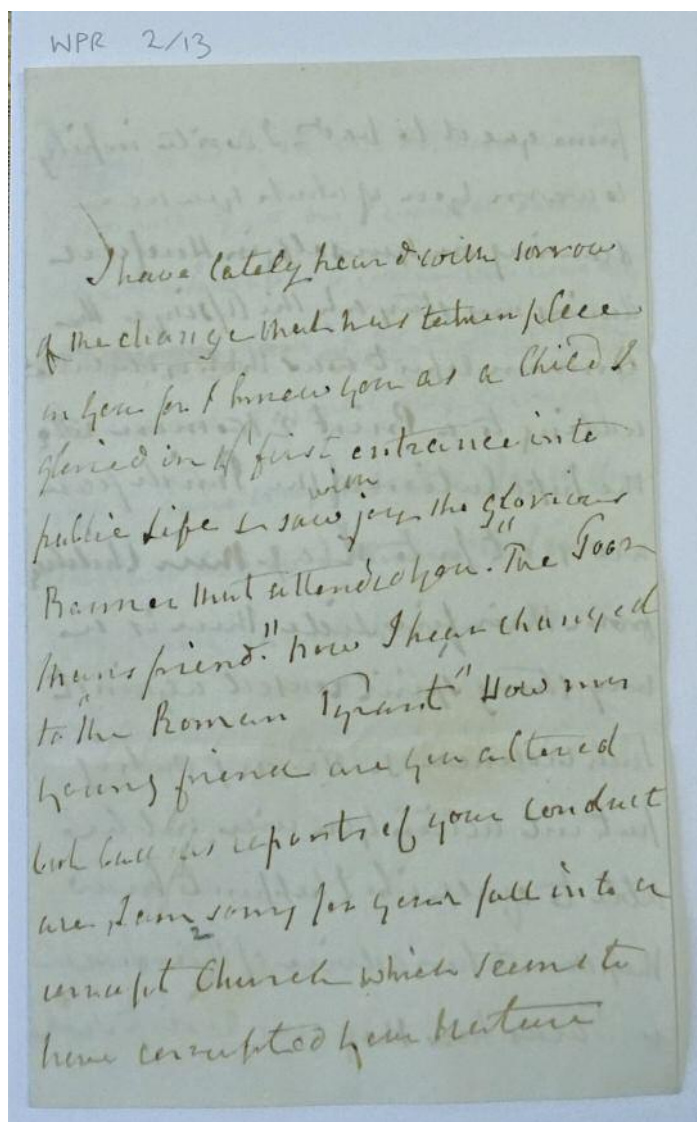 WPR 2/13
I have lately heard with sorrow
of the change that has taken place
in you for I knew you as a Child I
gloried in yr first entrance into
public Life & saw with joy the glorious
Banner that attended you. "The Poor
Mans friend." now I hear changed
to "the Roman Tyrant" How my
young friend are you altered
but bad as reports of your conduct
are, I am sorry for your fall into a
2
corrupt Church which seems to
have corrupted your Nature